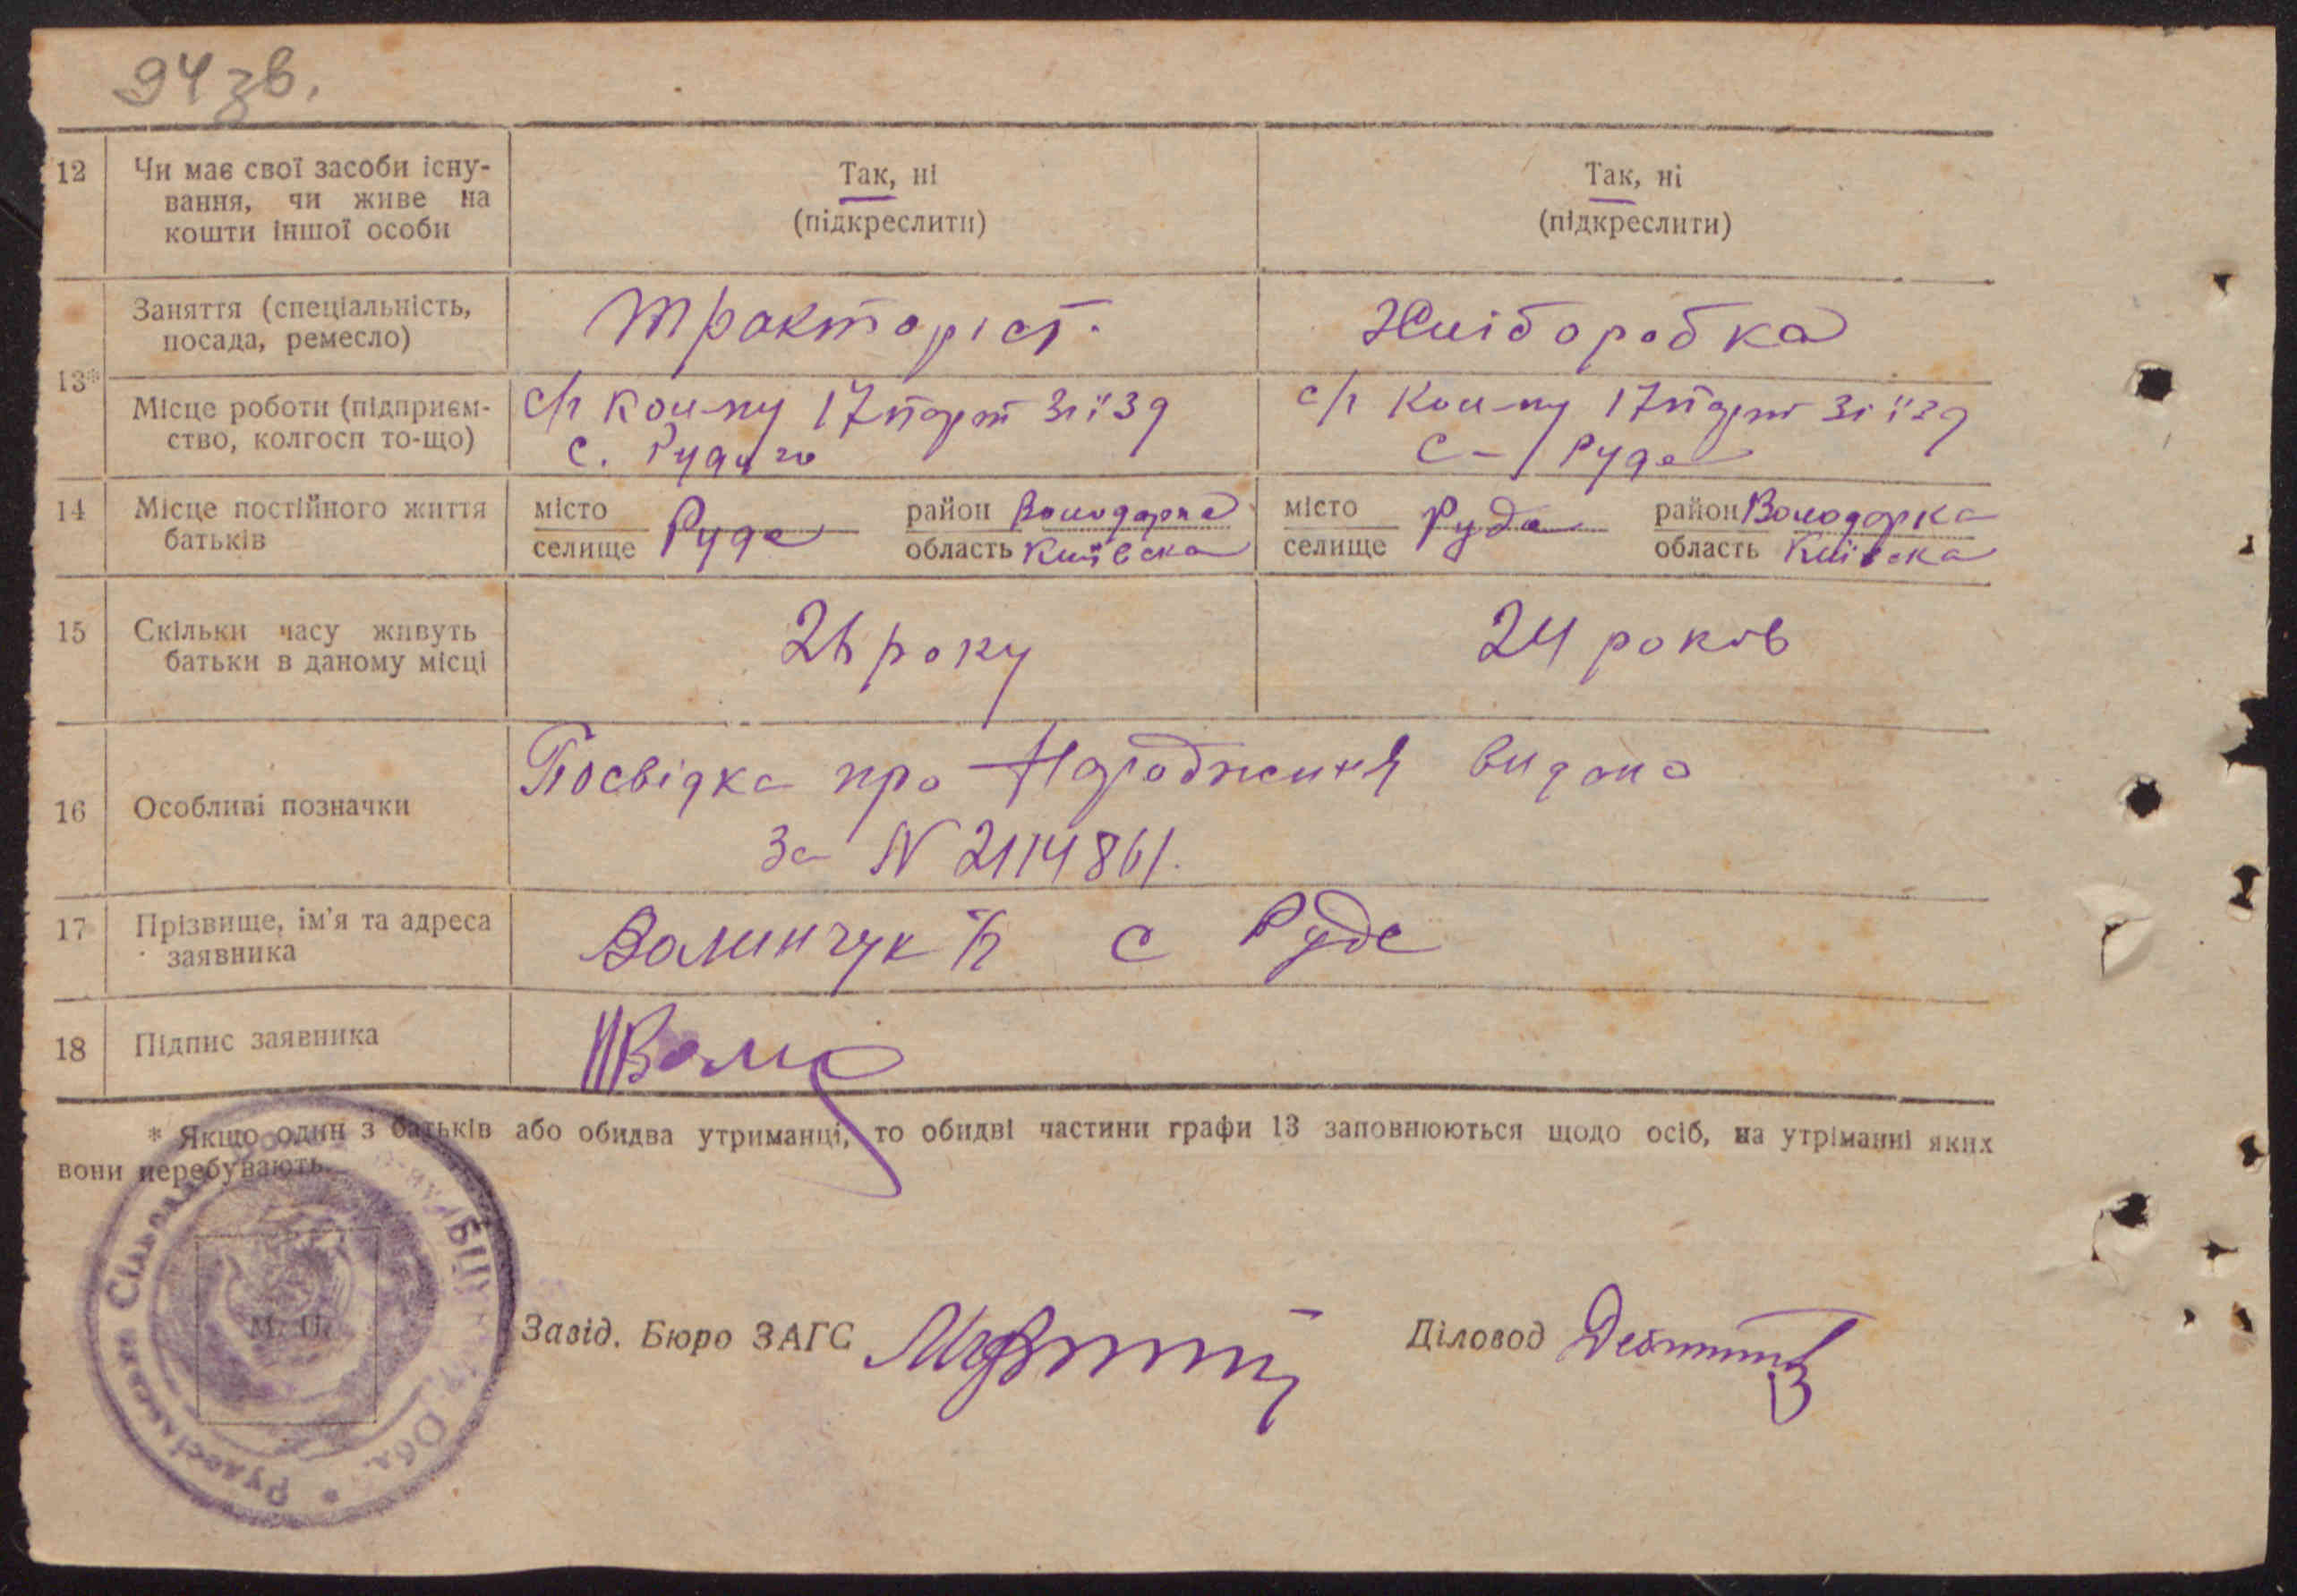 94 зв.
12 Чи має свої засоби існу-
вання, чи живе на
кошти іншої особи
Так, ні
(підкреслити)
Так, ні
(підкреслити)
13*
Заняття (спеціальність,
посада, ремесло)
Тракторіст.
Хліборобка
Місце роботи (підприєм-
ство, колгосп то-що)
с/г 17 парт зїзд
с. Руда
с/г 17 парт зїзд
с - Руда
14 Місце постійного життя
батьків
місто
селище
Руда
район Володарка
область Київска
місто
селище
Руда
район Володарка
область Київска
15 Скільки часу живуть
батьки в даному місці
26 року
24 років
16 Особливі позначки
Посвідка про Народження видана
За N 2114861.
17 Прізвище, ім'я та адреса
заявника
Волинчук П с Руда
18 Підпис заявника
* Якщо один з батьків або обидва утриманці, то обидві частини графи 13 заповнюються щодо осіб, на утріманні яких
вони перебувають.
М. П.
Завід. Бюро ЗАГС
Діловод